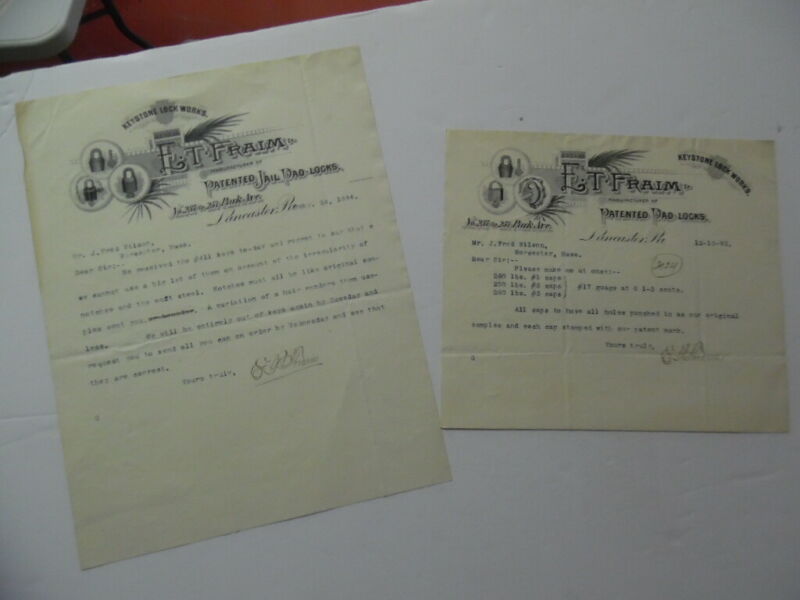 KEYSTONE LOCK WORKS.
E.T. FRAIM
MANUFACTURER OF
PATENTED JAIL PAD-LOCKS.
No. 237 to 251 Park Ave.
Lancaster, Pa 1894.
Mr. J. Fred Wilson,
Worcester, Mass.
Dear Sir:--
We received the Jail keys to-day and regret to say that
we cannot use a big lot of them on account of the irregularity of
notches and the soft steel. Notches must all be like original sam-
ples sent you. A variation of a hair renders them use-
less. We will be entirely out of keys again by Tuesday and
request you to send all you can on order by Wednesday and see that
they are correct.
Yours truly,
E.T. Fraim
G
KEYSTONE LOCK WORKS.
E.T. FRAIM
MANUFACTURER OF
PATENTED PAD-LOCKS.
No. 237 to 251 Park Ave.
Lancaster, Pa
Mr. J. Fred Wilson,
Worcester, Mass.
Dear Sir:--
Please make me at once:--
lbs. #1 caps
250 lbs. #2 caps #17 guage at 4 1-2 cents.
lbs. #3 caps
All caps to have all holes punched as our original
samples and each cap stamped with our patent mark.
Yours truly,
E.T. Fraim
G